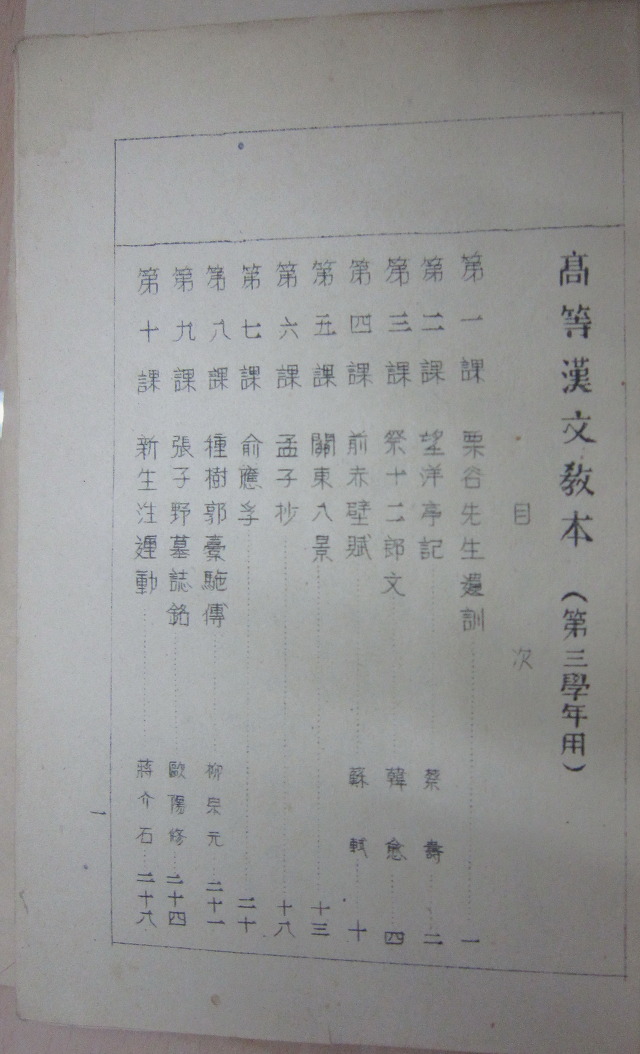 高等漢文敎本 (第三學年用)
目次
第一課 栗谷先生遺訓 一
第二課 望洋亭記 蔡壽 二
第三課 祭十二郎文 韓愈 四
第四課 前赤壁賦 蘇軾 十
第五課 關東八景 十三
第六課 孟子抄 十八
第七課 兪應孚 二十
第八課 種樹郭橐駝傳 柳宗元 二十一
第九課 張子野墓誌銘 歐陽修 二十四
第十課 新生活運動 蔣介石 二十六
一